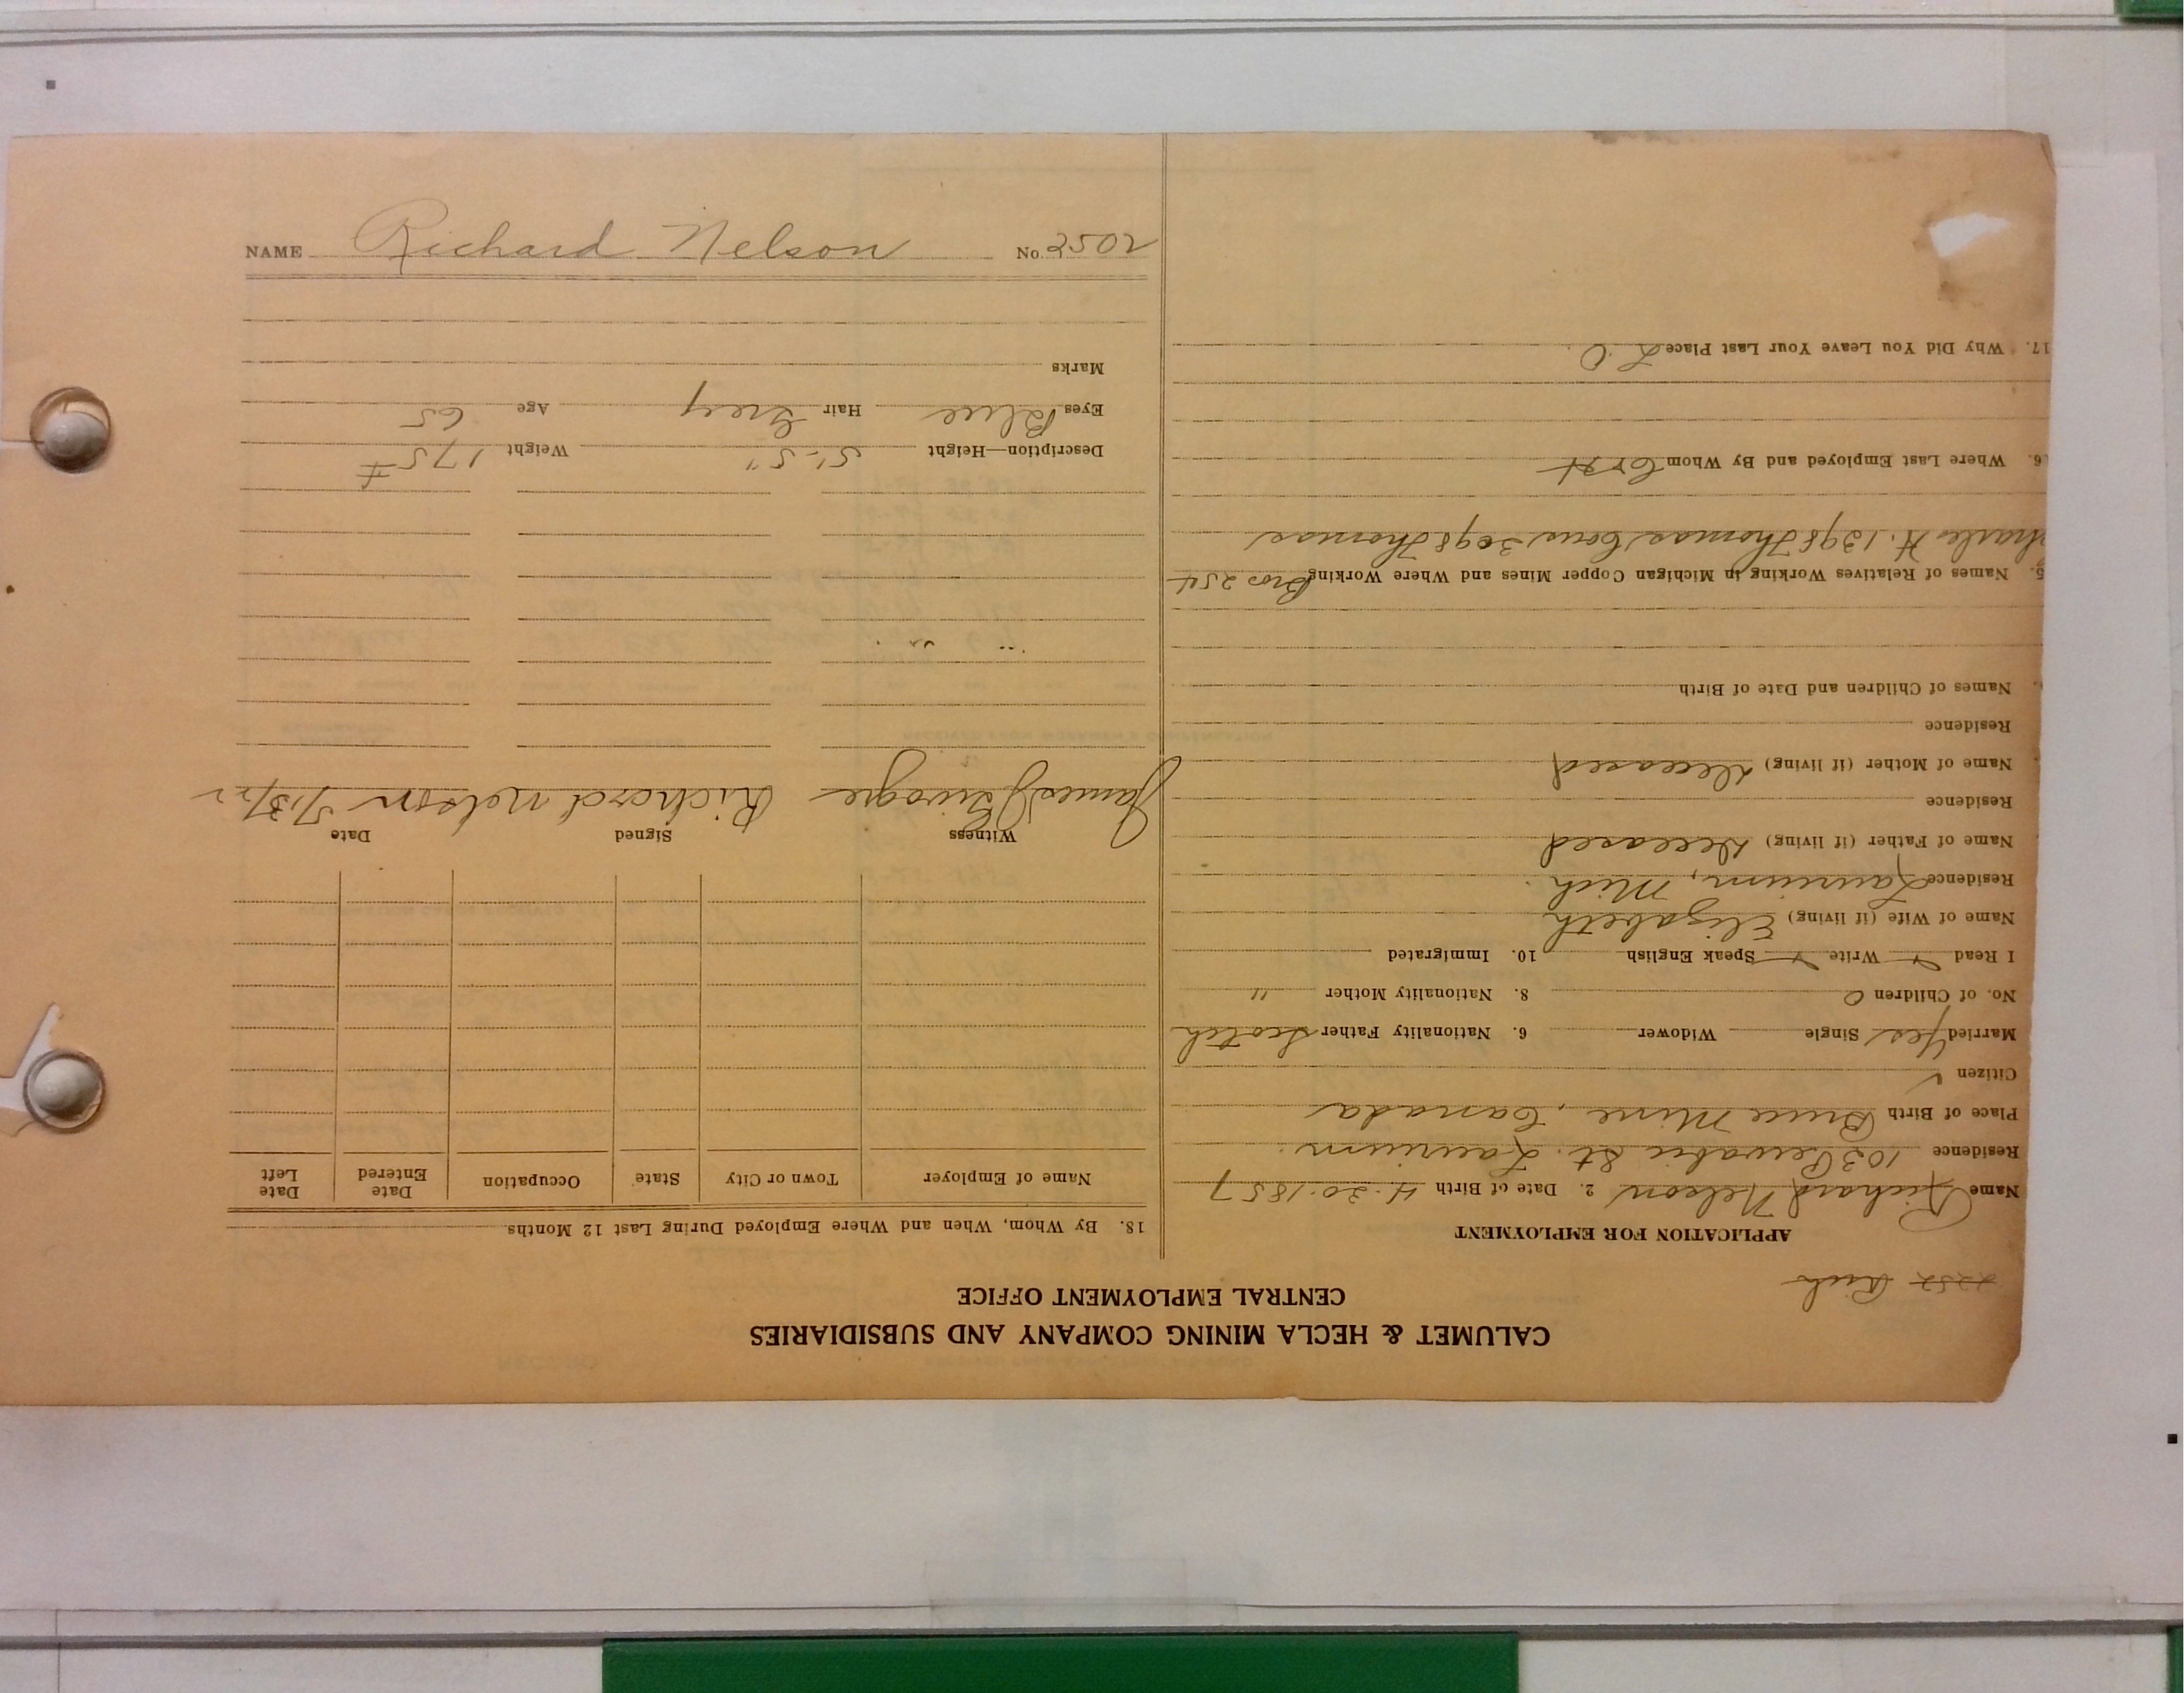 NAME Richard Nelson No. 2502
CALUMET & HECLA MINING COMPANY AND SUBSIDIARIES
CENTRAL EMPLOYMENT OFFICE
Rich
APPLICATION FOR EMPLOYMENT
Name Richard Nelson 2. Date of Birth 4.20.1857
Residence 103 Pewabic St. Laurium.
Place of Birth Bruce Mine, Canada
Citizen ✓
Married Yes Single Widower 6. Nationality Father Scotch
No. of Children 0 8. Nationality Mother "
I Read ✓ Write ✓ Speak English 10. Immigrated
Name of Wife (if living) Elizabeth
Residence Laurium, Mich.
Name of Father (if living) Deceased
Residence
Name of Mother (if living) Deceased
Residence
Names of Children and Date of Birth
5. Names of Relatives Working in Michigan Copper Mines and Where Working Bros 254
Charles H. 1398 Thomas Cous 3098 Thomas
6. Where Last Employed and By Whom
17. Why Did You Leave Your Last Place L.O.
18. By Whom, When and Where Employed During Last 12 Months
Name of Employer Town or City State Occupation Date Entered Date Left
Witness Signed Date
James Richard Nelson
Description—Height 5'-5" Weight 175#
Eyes Blue Hair Grey Age 65
Marks